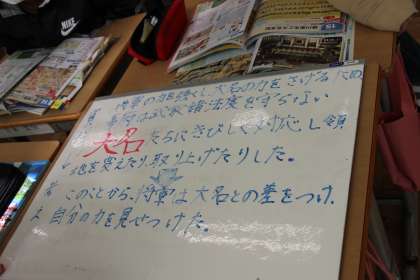 将軍の力を強くし大名の力をさげるため
幕府は武家諸法度を守らない
大名たちにきびしく対応し領
地を変えたり取り上げたりした。
このことから、将軍は大名との差をつけ、
自分の力を見せつけた。